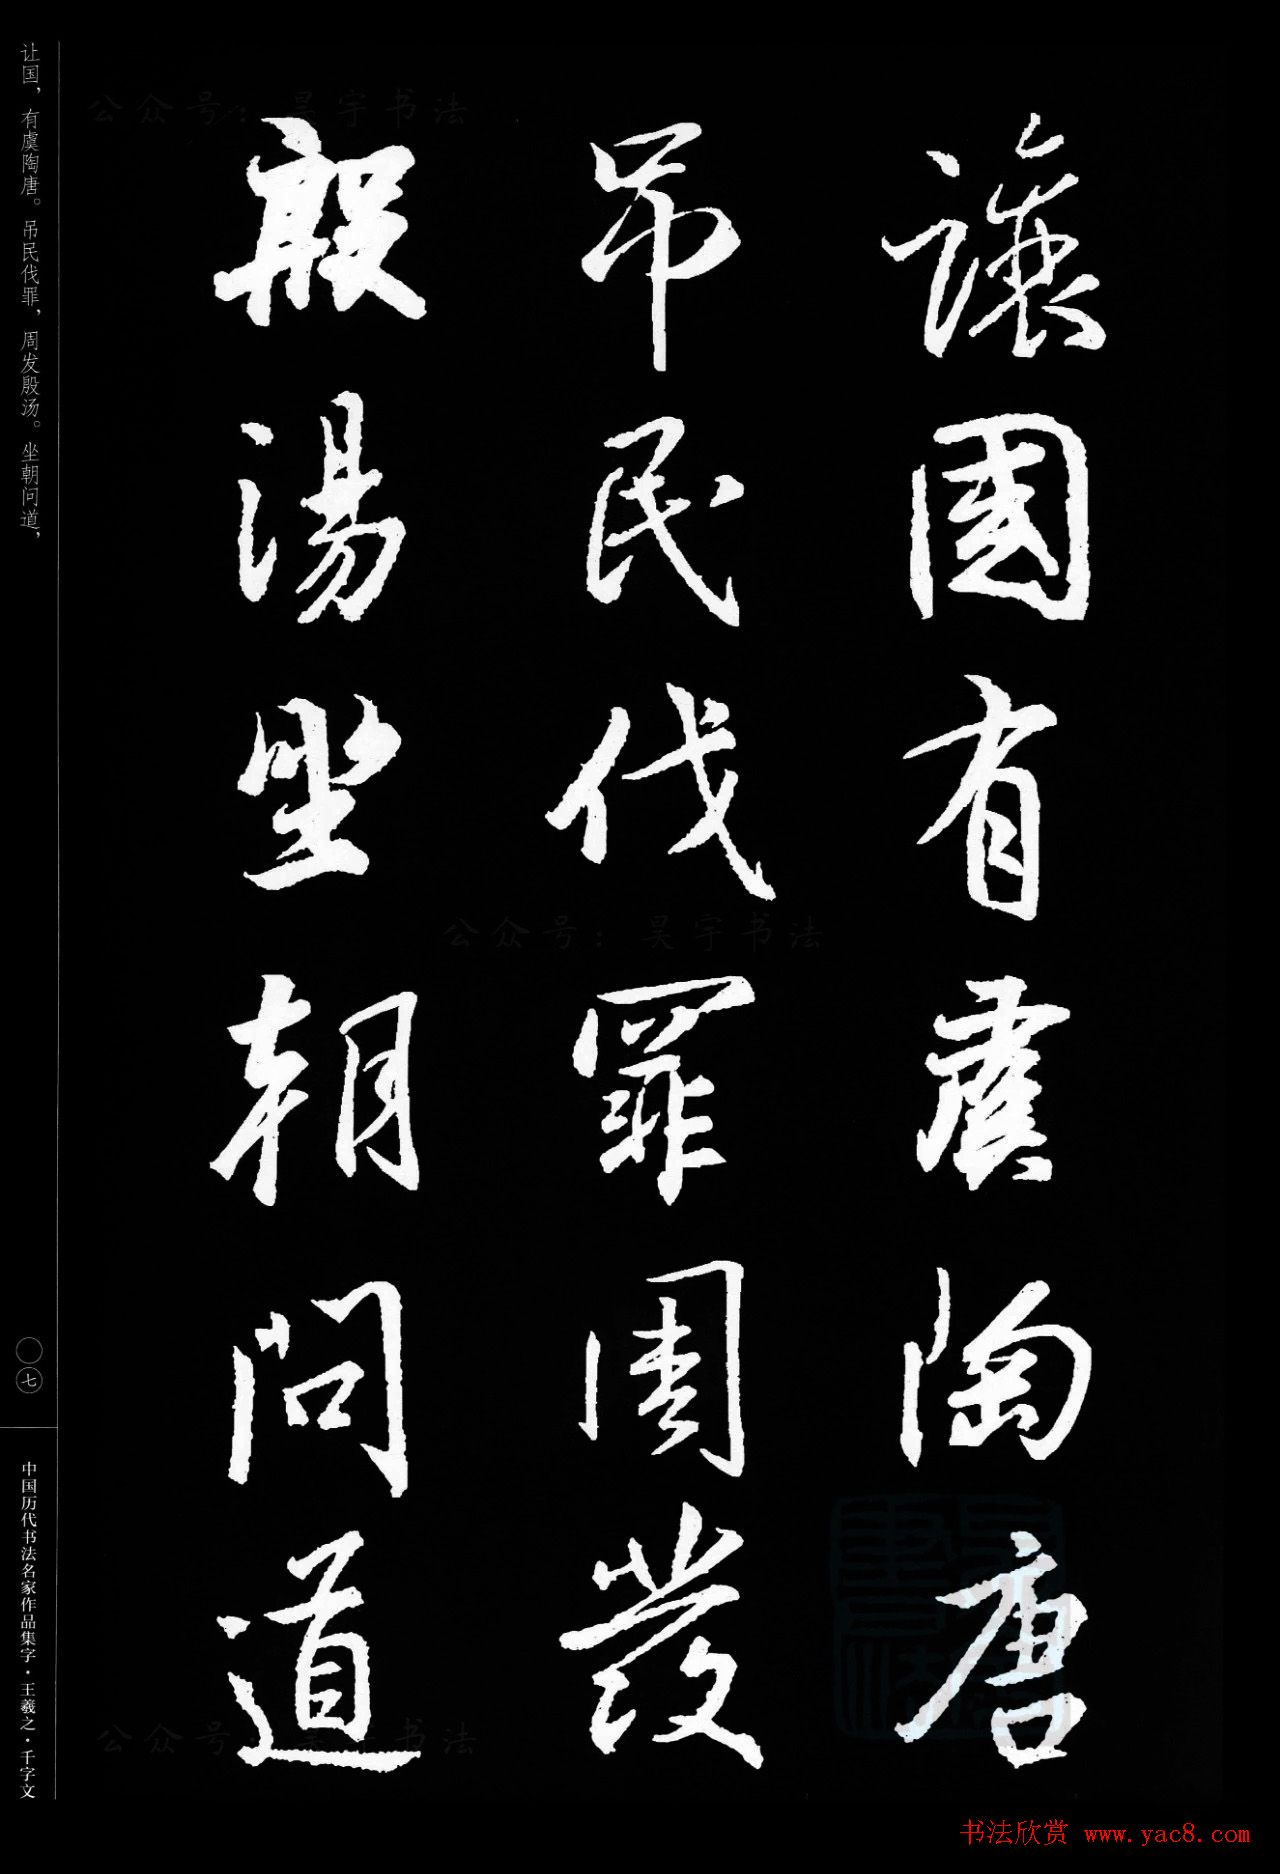 讓國有虞陶唐
吊民伐罪周發
殷湯坐朝問道
让国，有虞陶唐。吊民伐罪，周发殷汤。坐朝问道，
〇七
中国历代书法名家作品集字·王羲之·千字文
公众号：昊宇书法
公众号：昊宇书法
公众号：昊宇书法
书法欣赏 www.yac8.com